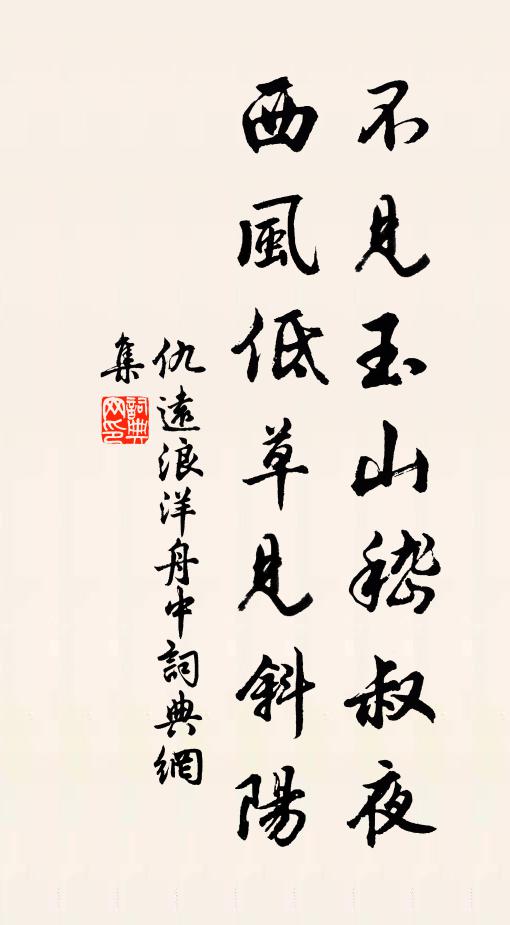 不見玉山嵇叔夜
西風低草見斜陽
仇遠浪洋舟中詞典網
集
詞典網印